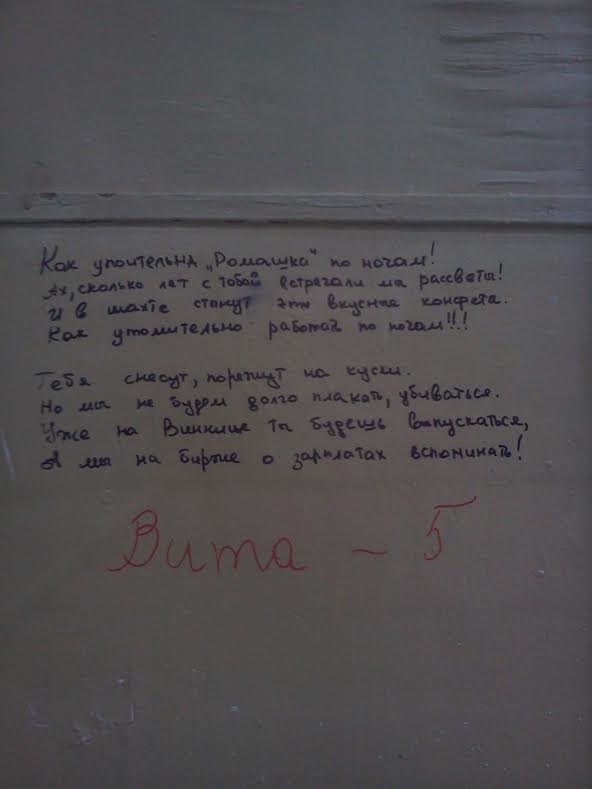 Как упоительна „Ромашка" по ночам!
Ах, сколько лет с тобой встречали мы рассветы!
И в шахте станут эти вкусные конфета.
Как утомительно работай по ночам!!!
Тебя снесут, порежут на куски.
Но мы не будем долго плакать, убиваться.
Уже на Виннице ты будешь выпускаться,
А мы на бирже о зарплатах вспоминать!
Вита – 5